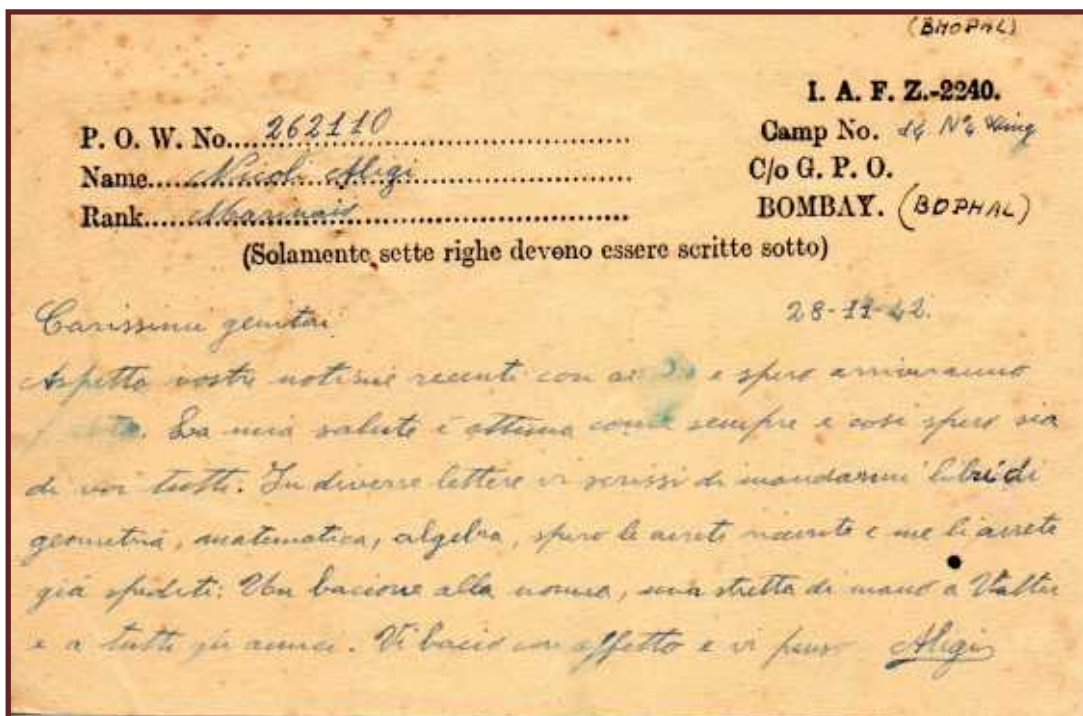 (BHOPAL)
I. A. F. Z.-2240.
P. O. W. No. 262110
Camp No. 14 N°4 Wing
Name Nicoli Aligi
C/o G. P. O.
Rank Marinaio
BOMBAY. (BOPHAL)
(Solamente sette righe devono essere scritte sotto)
28-11-42.
Carissimi genitori
Aspetto vostre notizie recenti con e spero arriveranno
La mia salute è ottima come sempre e così spero sia
di voi tutti. In diverse lettere vi scrissi di mandarmi libri di
geometria, matematica, algebra, spero le avrete ricevute e me li avrete
già spediti: Un bacione alla nonna, una stretta di mano a Valter
e a tutti gli amici. Vi bacio con affetto e vi penso Aligi